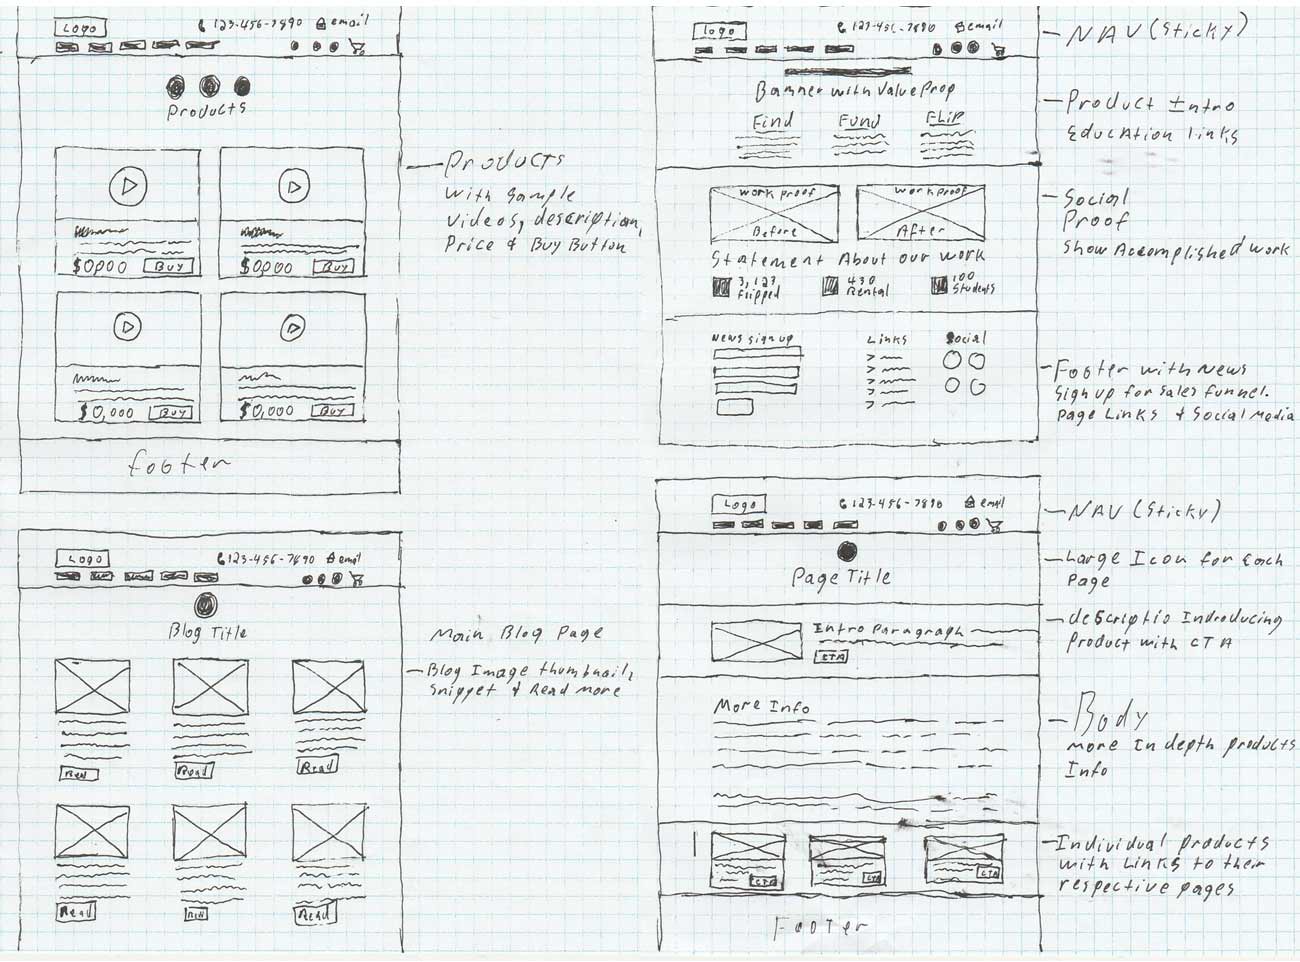 Logo
123-456-7890
email
Products
$0,000
Buy
$0,000
Buy
$0,000
Buy
$0,000
Buy
footer
Products
With Sample
Videos, description,
Price & Buy Button
Logo
123-456-7890
email
Banner with Value Prop
Find
Fund
FLIP
Work proof
Before
Work proof
After
Statement About our work
3,123
flipped
430
Rental
100
Students
News sign up
Links
Social
NAV (Sticky)
Product Intro
Education Links
Social
Proof
Show Accomplished work
Footer with News
Sign up for Sales funnel.
Page Links & Social Media
Logo
123-456-7890
email
Blog Title
Read
Read
Read
Read
Read
Main Blog Page
Blog Image thumbnail,
Snippet & Read More
Logo
123-456-7890
email
Page Title
Intro Paragraph
CTA
More Info
CTA
CTA
CTA
Footer
NAV (Sticky)
Large Icon for Each
Page
descriptio Indroducing
Product with CTA
Body
More In depth products
Info
Individual products
with Links to their
respective pages